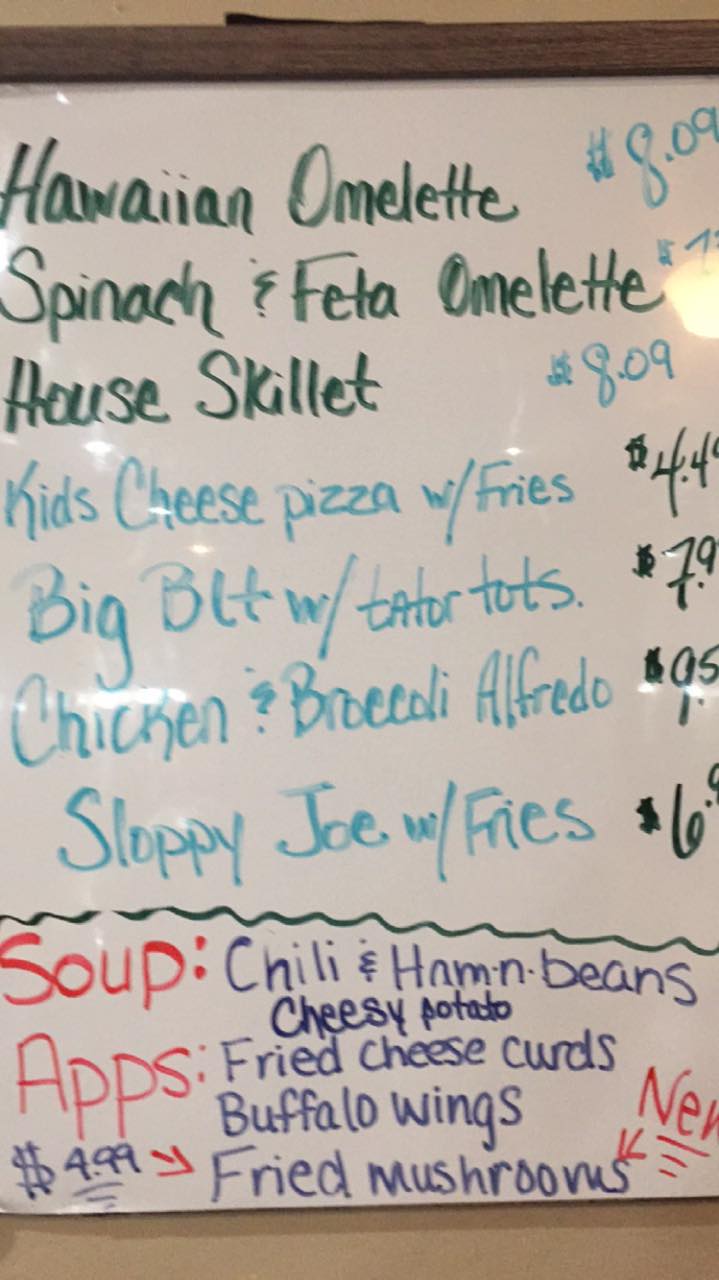 Hawaiian Omelette $8.09
Spinach & Feta Omelette $
House Skillet $8.09
Kids Cheese pizza w/Fries $4.4
Big Blt w/ tator tots. $7.9
Chicken & Broccoli Alfredo $9.5
Sloppy Joe w/Fries $6.9
Soup: Chili & Ham-n-beans
Cheesy potato
Apps: Fried cheese curds
Buffalo wings
New
$4.99 → Fried mushrooms